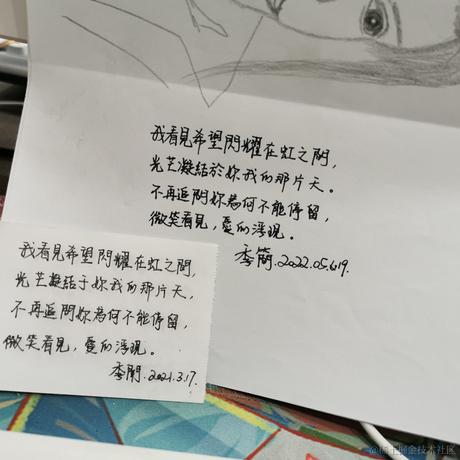 我看見希望閃耀在虹之間，
光芒凝結於妳我的那片天。
不再追問妳為何不能停留，
微笑看見，愛的浮現。
季簡.2022.05.19.
我看見希望閃耀在虹之間，
光芒凝結于妳我的那片天，
不再追問妳為何不能停留，
微笑看見，愛的浮現。
季簡.2021.3.17.
@稀土掘金技术社区